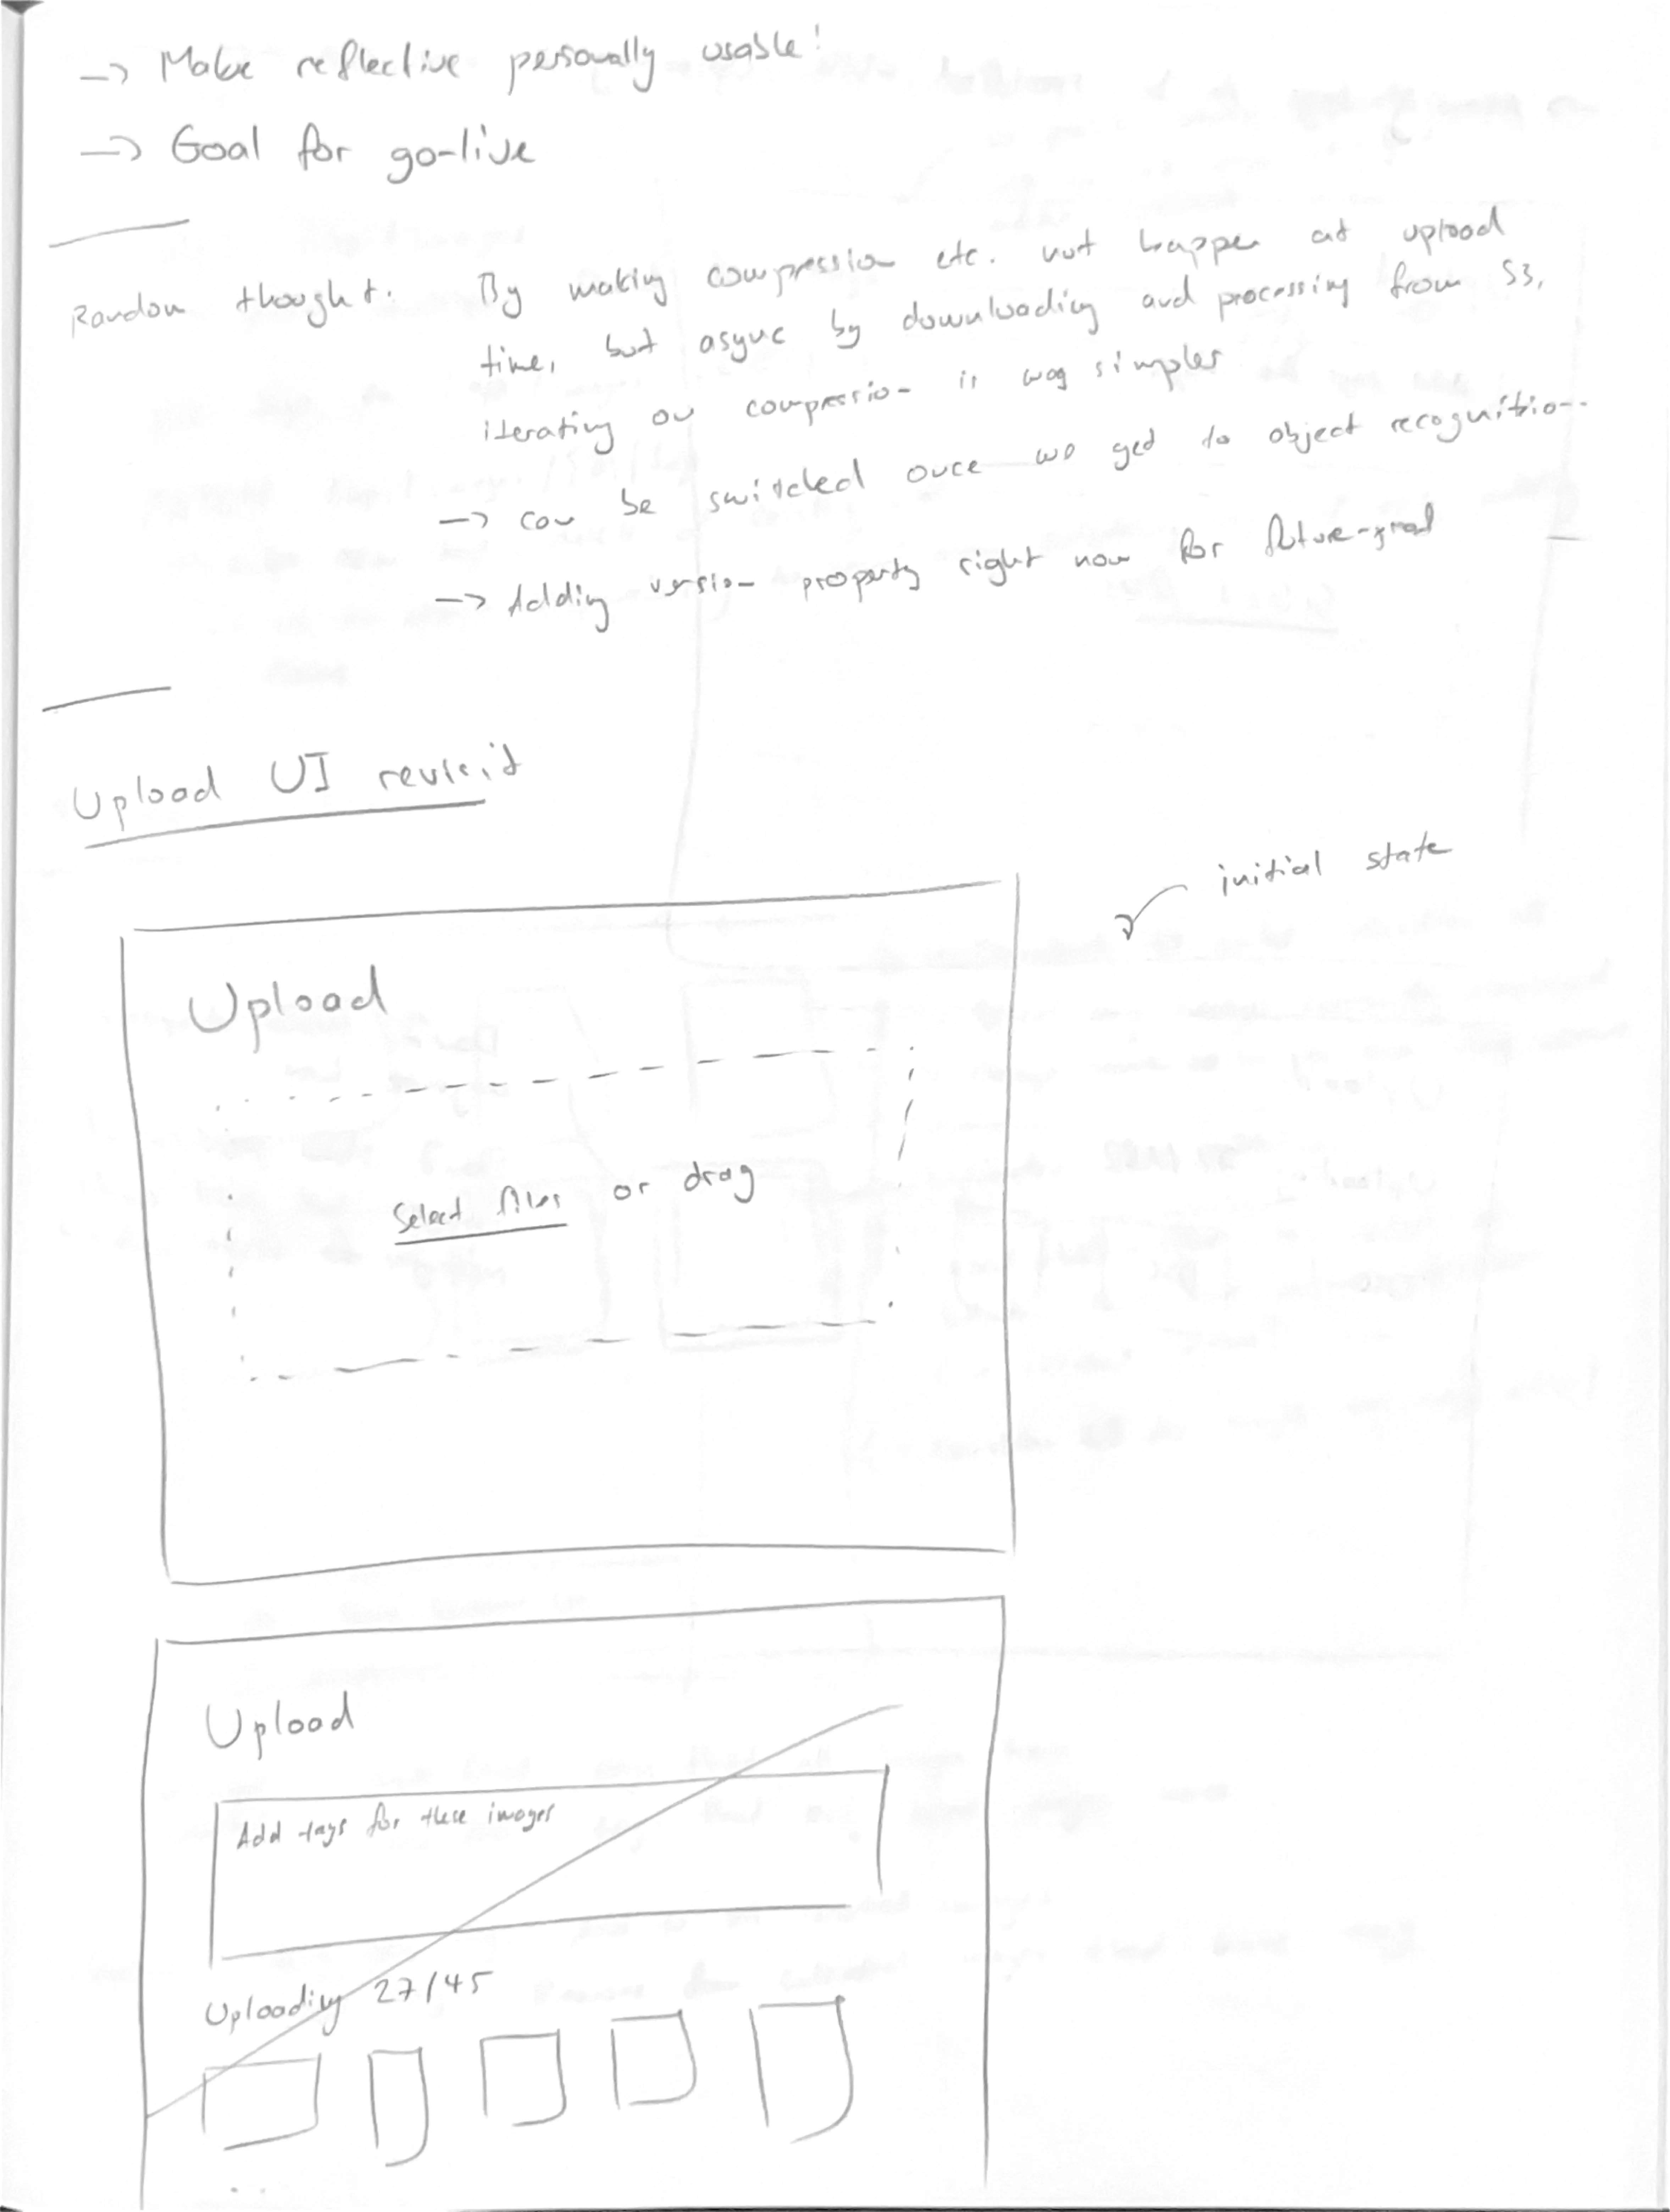 → Make reflective personally usable!
→ Goal for go-live
Random thought: By making compression etc. not happen at upload
time, but async by downloading and processing from S3,
iterating on compression is way simpler
→ can be switched once we get to object recognition
→ Adding version property right now for future-proof
Upload UI revisit
initial state
Upload
Select files or drag
Upload
Add tags for these images
Uploading 27/45